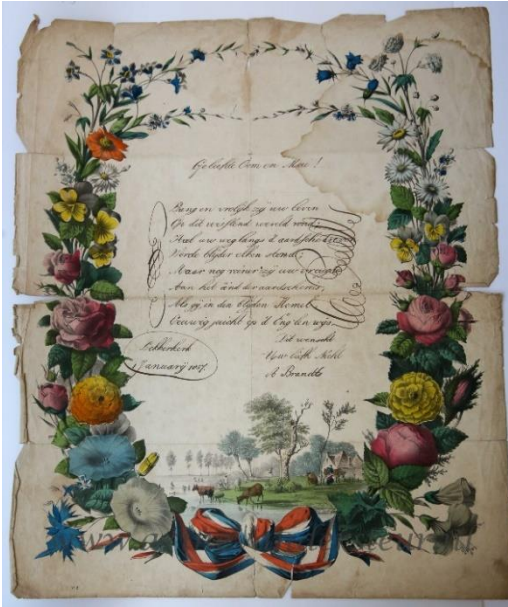 Geliefde Oom en Moe!
Lang en vrolijk zij uw leven
Op dit wereld rond
Heel uw weg langs d'aardsche
Worde blijder elken stond;
Maar nog reiner zij uw vreugde
Aan het eind der aardsche
Als gij in den blijden Hemel
Eeuwig juicht op d'Englen wijs.
Lekkerkerk
1 Januarij 1857.
Dit wenscht
Uw
A Brandts